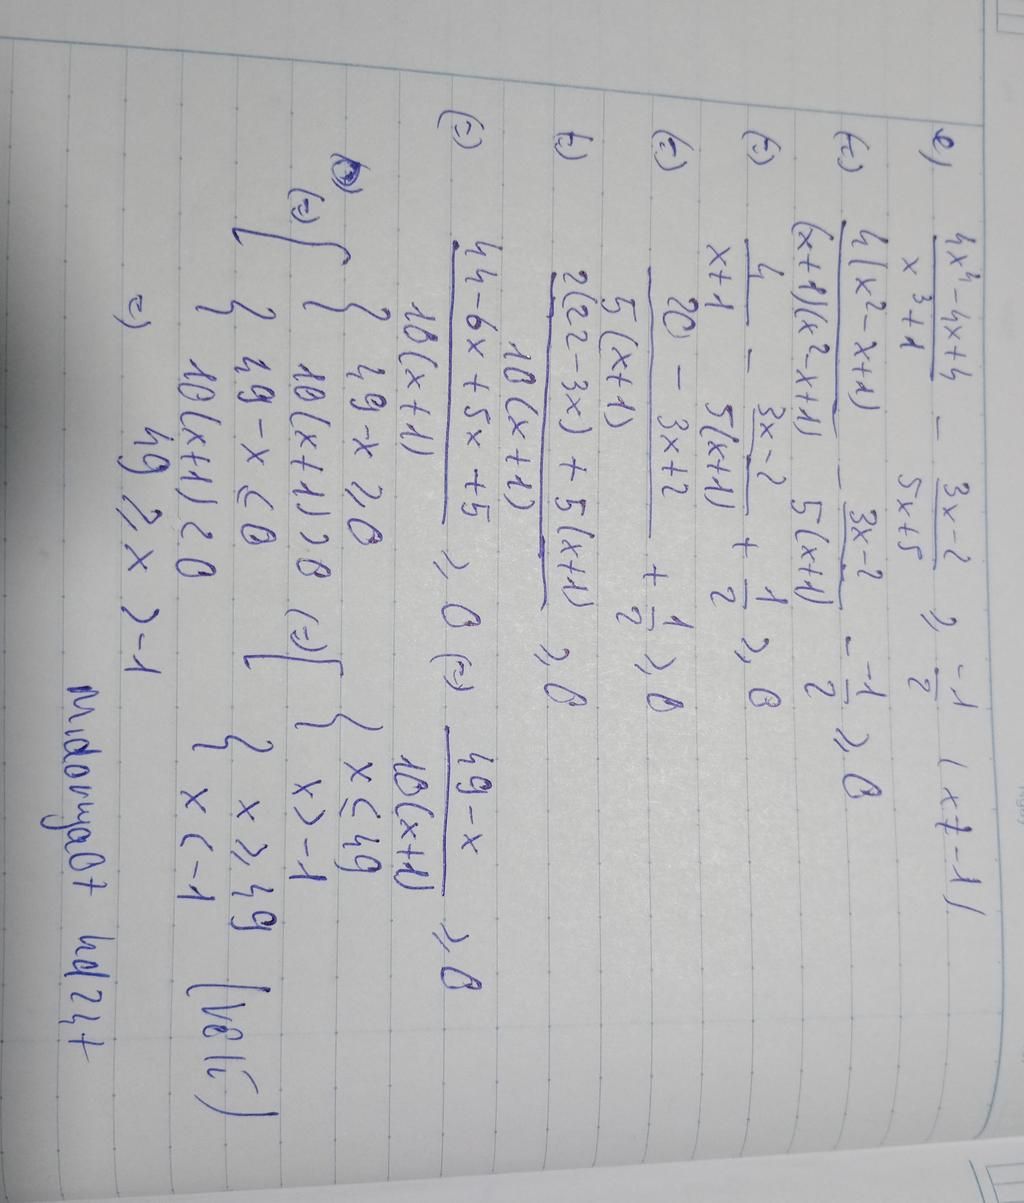 e) \frac{4x^4-4x+4}{x^3+1} - \frac{3x-2}{5x+5} ≥ \frac{-1}{2} (x ≠ -1)
(=) \frac{4(x^2-x+1)}{(x+1)(x^2-x+1)} - \frac{3x-2}{5(x+1)} - \frac{-1}{2} ≥ 0
(=) \frac{4}{x+1} - \frac{3x-2}{5(x+1)} + \frac{1}{2} ≥ 0
(=) \frac{20 - 3x+2}{5(x+1)} + \frac{1}{2} ≥ 0
(=) \frac{2(22-3x) + 5(x+1)}{10(x+1)} ≥ 0
(=) \frac{44-6x+5x+5}{10(x+1)} ≥ 0 (=) \frac{49-x}{10(x+1)} ≥ 0
(=) [ { 49-x ≥ 0 (=) [ { x ≤ 49
10(x+1) > 0 x > -1
{ 49-x ≤ 0 { x ≥ 49
10(x+1) < 0 x < -1 (VôLí)
=) 49 ≥ x > -1
Midoruya07 hd24+